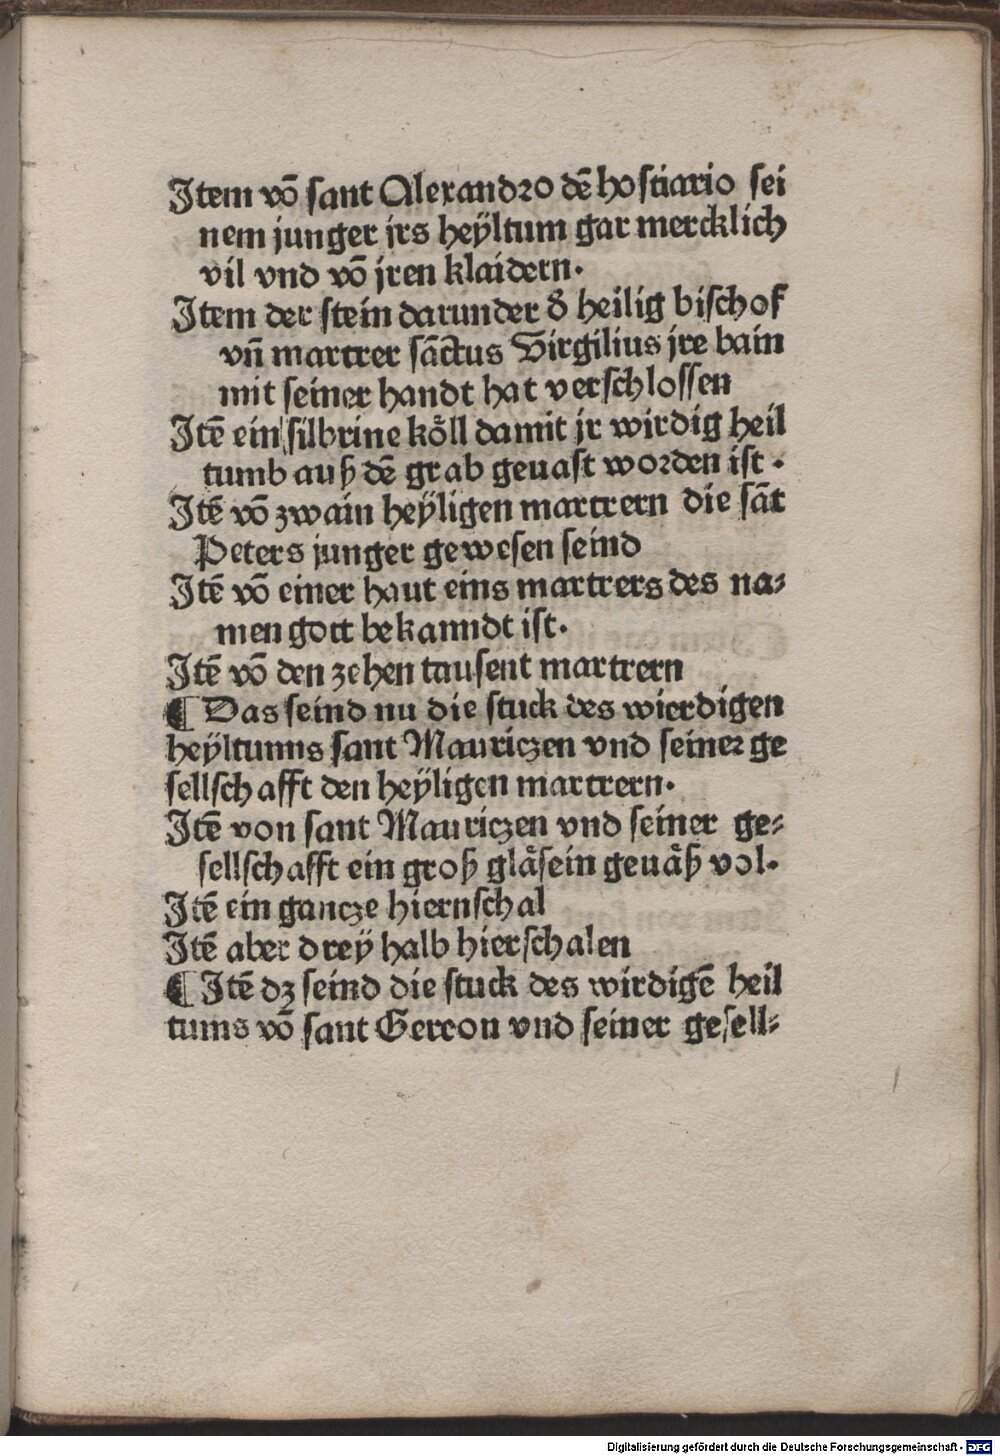 Item võ sant Alexandro dẽ hostiario sei
nem junger jrs heÿltum gar mercklich
vil vnd võ jren klaidern.
Item der stein darunder d̕ heilig bischof
vñ martrer sãctus Virgilius jre bain
mit seiner handt hat verschlossen
Itẽ ein silbrine köll damit jr wirdig heil
tumb auß dẽ grab geuast worden ist.
Itẽ võ zwain heÿligen martrern die sãt
Peters junger gewesen seind
Itẽ võ einer haut eins martrers des na⸗
men gott bekanndt ist.
Itẽ võ den zehen tausent martrern
¶ Das seind nu die stuck des wierdigen
heÿltumms sant Mauriczen vnd seiner ge
sellschafft den heÿligen martrern.
Itẽ von sant Mauriczen vnd seiner ge⸗
sellschafft ein groß gläsein geuäß vol.
Itẽ ein gancze hiernschal
Itẽ aber dreÿ halb hierschalen
¶ Itẽ dz seind die stuck des wirdigẽ heil
tums võ sant Gereon vnd seiner gesell⸗
Digitalisierung gefördert durch die Deutsche Forschungsgemeinschaft - DFG